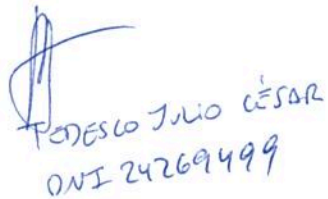 TEDESCO JULIO CÉSAR
DNI 24269499